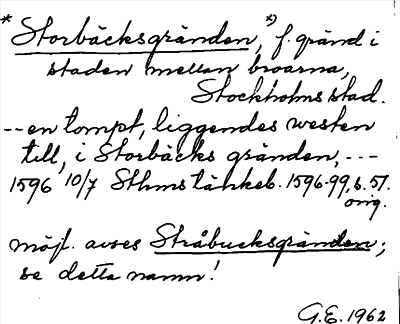 * Storbäcksgränden, *) f. gränd i
staden mellan broarna,
Stockholms stad.
-- en tompt, liggendes westen
till, i Storbäcks gränden, ---
1596 10/7 Sthms tänkeb. 1596-99, s. 57.
orig.
möjl. avses Stråbucksgränden;
se detta namn!
G.E. 1962